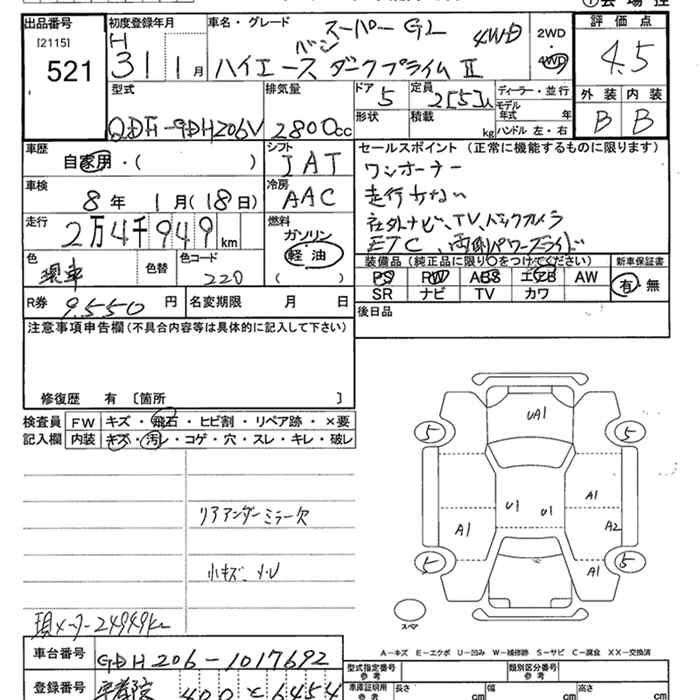 出品番号 初度登録年月 車名・グレード 評価点
[2115] H スーパーGL
521 31 1月 バン ハイエース ダークプライムⅡ 4WD 2WD 4WD 4.5
型式 排気量 ドア 定員 ディーラー・並行 外装 内装
QDF-GDH206V 2800cc 5 2[5]人 モデル年式 年 B B
形状 積載 kg ハンドル 左・右
車歴 シフト セールスポイント (正常に機能するものに限ります)
自家用・( IAT ワンオーナー
車検 冷房 走行少ない
8年 1月(18日) AAC 社外ナビ、TV、バックカメラ
走行 燃料 ETC、両側パワースライド
2万4千949km ガソリン
軽油
( )
色 色替 色コード 装備品 (純正品に限り○をつけてください) 新車保証書
現車 220 PS PW ABS エアB AW 有・無
R券 9.550円 名変期限 月 日 SR ナビ TV カワ
注意事項申告欄(不具合内容等は具体的に記入して下さい) 後日品
修復歴 有 〔箇所 〕
検査員 FW キズ・飛石・ヒビ割・リペア跡・×要
記入欄 内装 キズ・汚レ・コゲ・穴・スレ・キレ・破レ
UA1
5 5
リアアンダーミラー欠
U1 U1 A1
A1 A2
小キズ
5 A1 5
スペア
現メーター24949km
A-キズ E-エクボ U-凹み W-補修跡 S-サビ C-腐食 XX-交換済
車台番号 GDH206-1017692
型式指定番号 類別区分番号
参考 参考
登録番号 400 6454
車庫証明用 長さ cm 幅 cm 高さ cm
参考